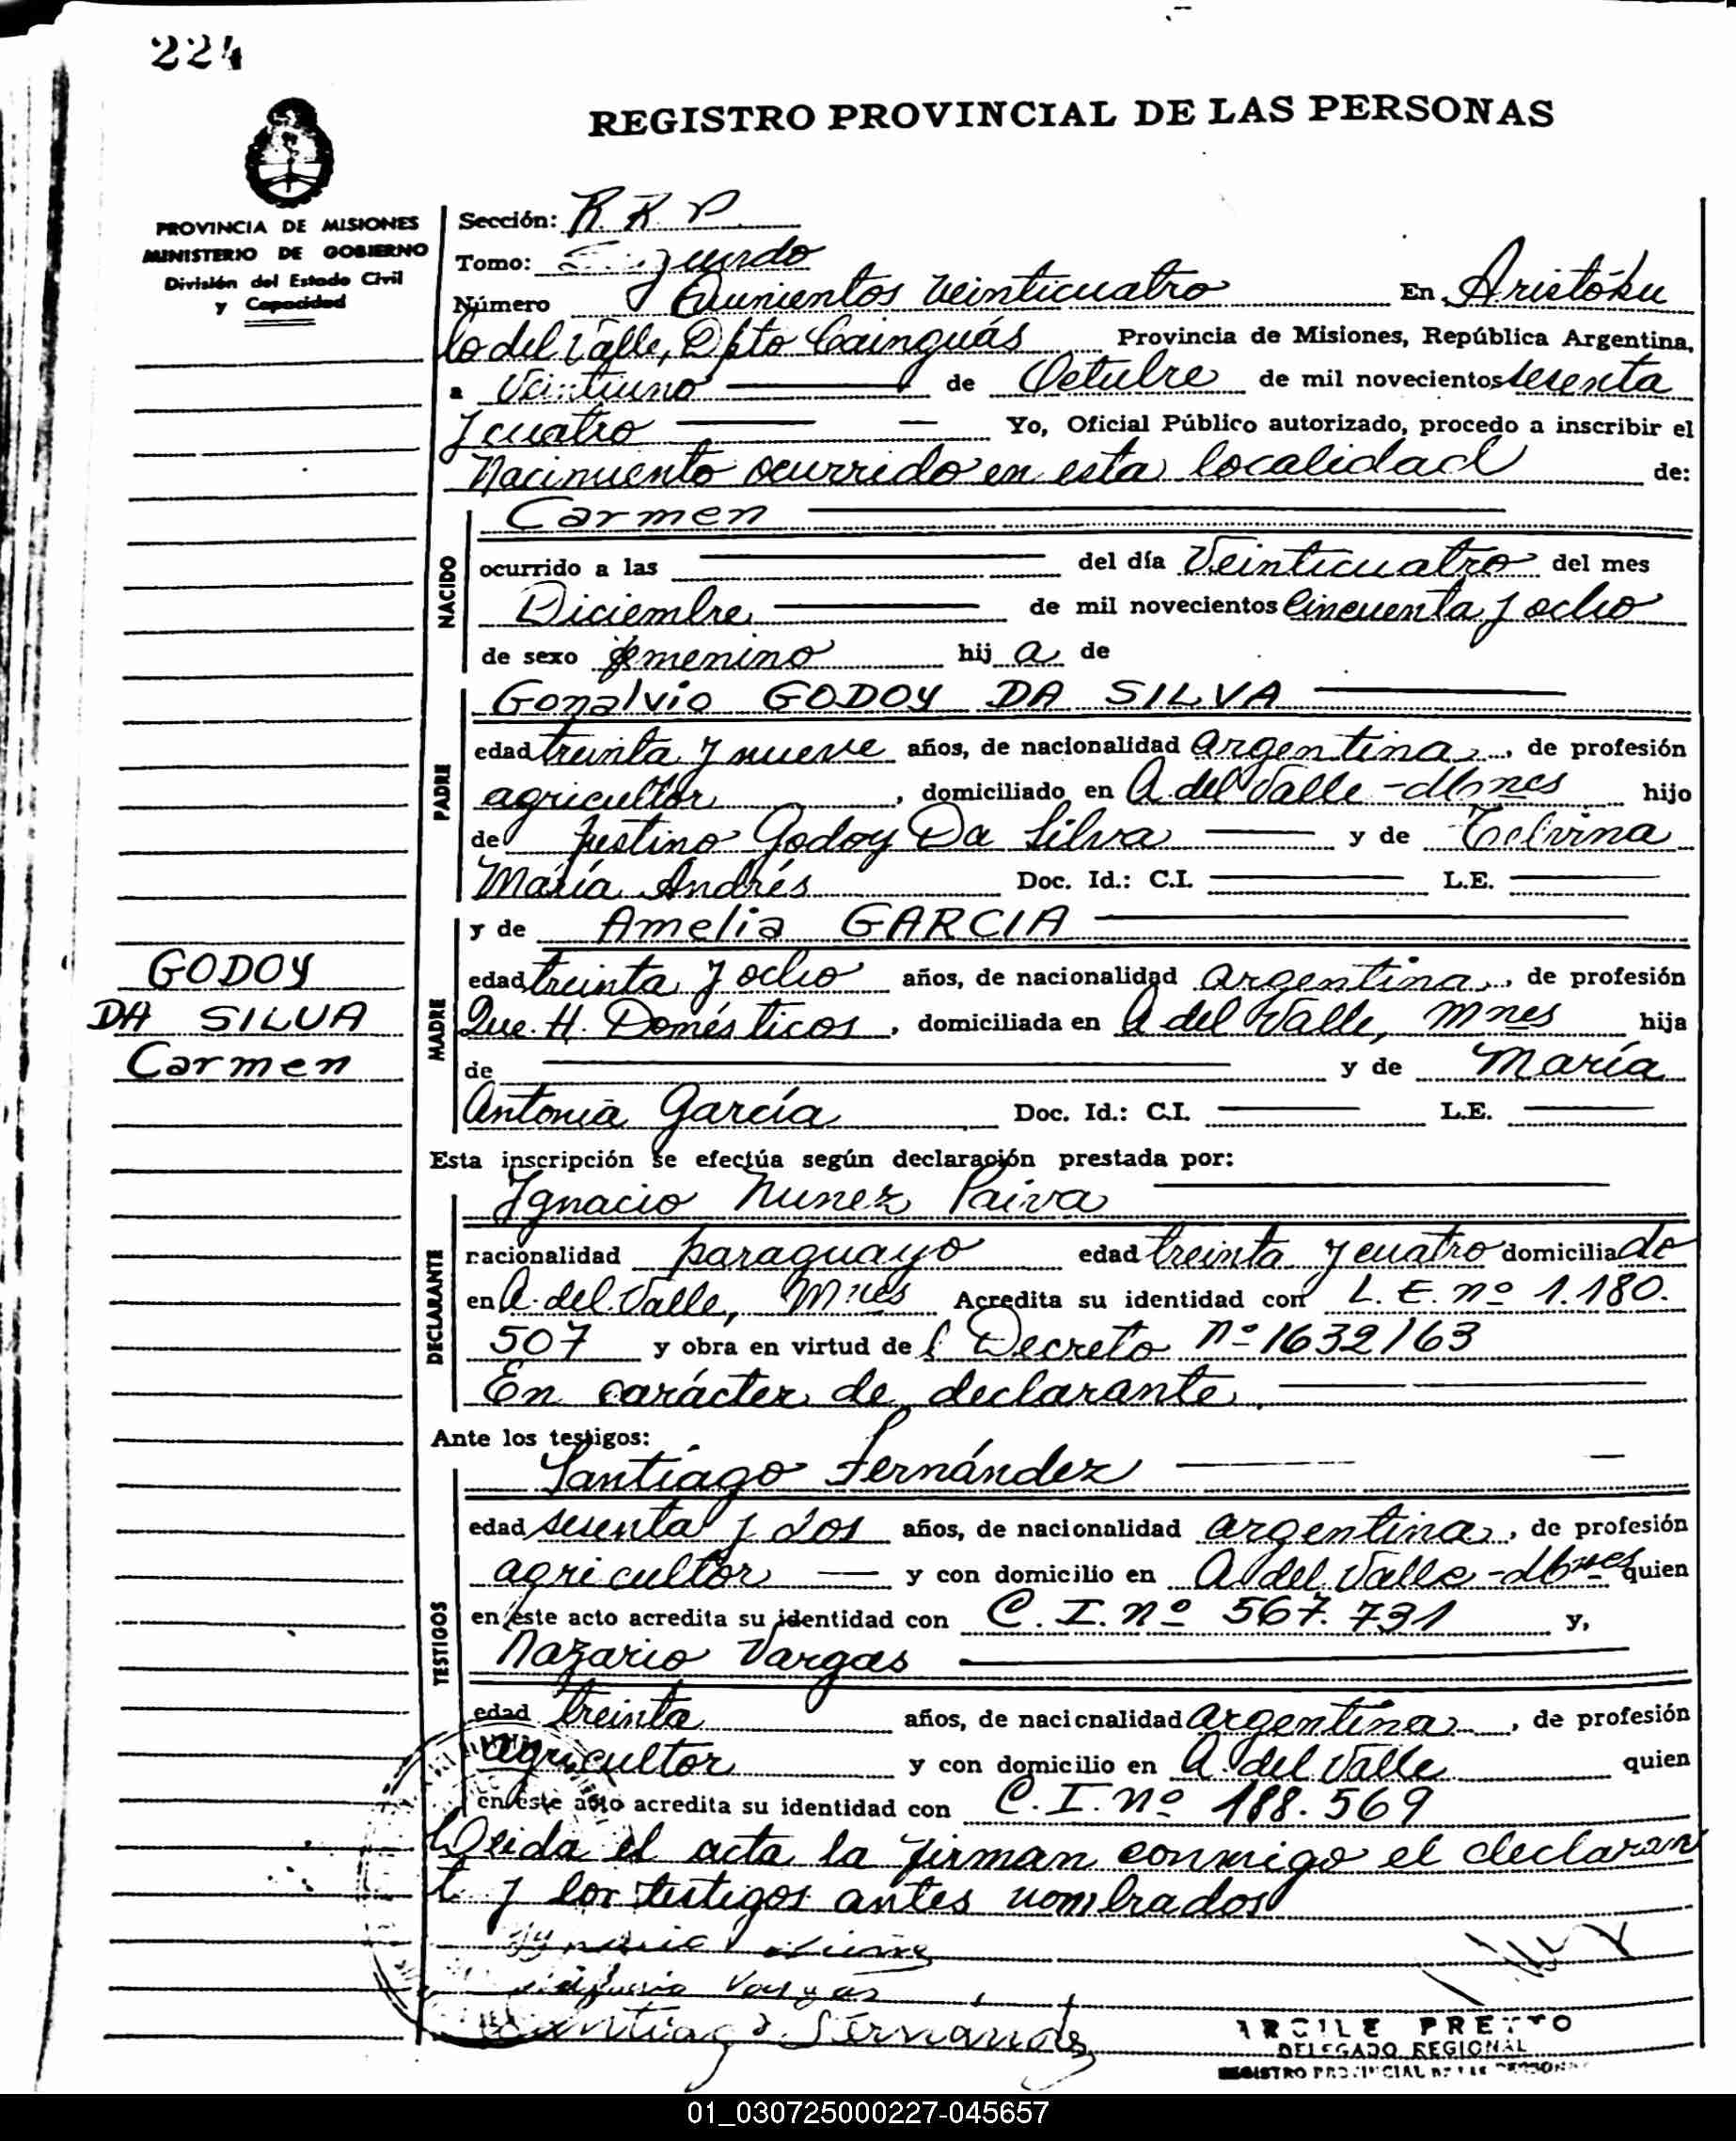 224
REGISTRO PROVINCIAL DE LAS PERSONAS
PROVINCIA DE MISIONES
MINISTERIO DE GOBIERNO
División del Estado Civil
y Capacidad
Sección: R. R. P.
Tomo: Segundo
Número Quinientos veinticuatro En Aristóbu
lo del Valle, Dpto Cainguás Provincia de Misiones, República Argentina,
a Veintiuno de Octubre de mil novecientos sesenta
y cuatro Yo, Oficial Público autorizado, procedo a inscribir el
Nacimiento ocurrido en esta localidad de:
NACIDO
Carmen
ocurrido a las del día Veinticuatro del mes
Diciembre de mil novecientos Cincuenta y ocho
de sexo femenino hij a de
PADRE
Gonzalvio GODOY DA SILVA
edad treinta y nueve años, de nacionalidad argentina, de profesión
agricultor, domiciliado en A. del Valle - Mnes hijo
de Justino Godoy Da Silva y de Telvina
María Andrés Doc. Id.: C.I. L.E.
MADRE
y de Amelia GARCIA
edad treinta y ocho años, de nacionalidad argentina, de profesión
Que. H. Domésticos, domiciliada en A del Valle, Mnes hija
de y de María
Antonia García Doc. Id.: C.I. L.E.
GODOY
DA SILVA
Carmen
Esta inscripción se efectúa según declaración prestada por:
DECLARANTE
Ignacio Nunez Paiva
nacionalidad paraguayo edad treinta y cuatro domiciliado
en A. del Valle, Mnes Acredita su identidad con L. E. nº 1.180.
507 y obra en virtud del Decreto nº 1632/63
En carácter de declarante
Ante los testigos:
TESTIGOS
Santiago Fernández
edad sesenta y dos años, de nacionalidad argentina, de profesión
agricultor y con domicilio en A. del Valle - Mnes quien
en este acto acredita su identidad con C. I. nº 567.731 y,
Nazario Vargas
edad treinta años, de nacionalidad argentina, de profesión
agricultor y con domicilio en A. del Valle quien
en este acto acredita su identidad con C. I. nº 188.569
Leida el acta la firman conmigo el declaran
te y los testigos antes nombrados
Vargas
Santiago Fernandez
ARCILE PRETTO
DELEGADO REGIONAL
REGISTRO PROVINCIAL DE LAS PERSONAS
01_030725000227-045657